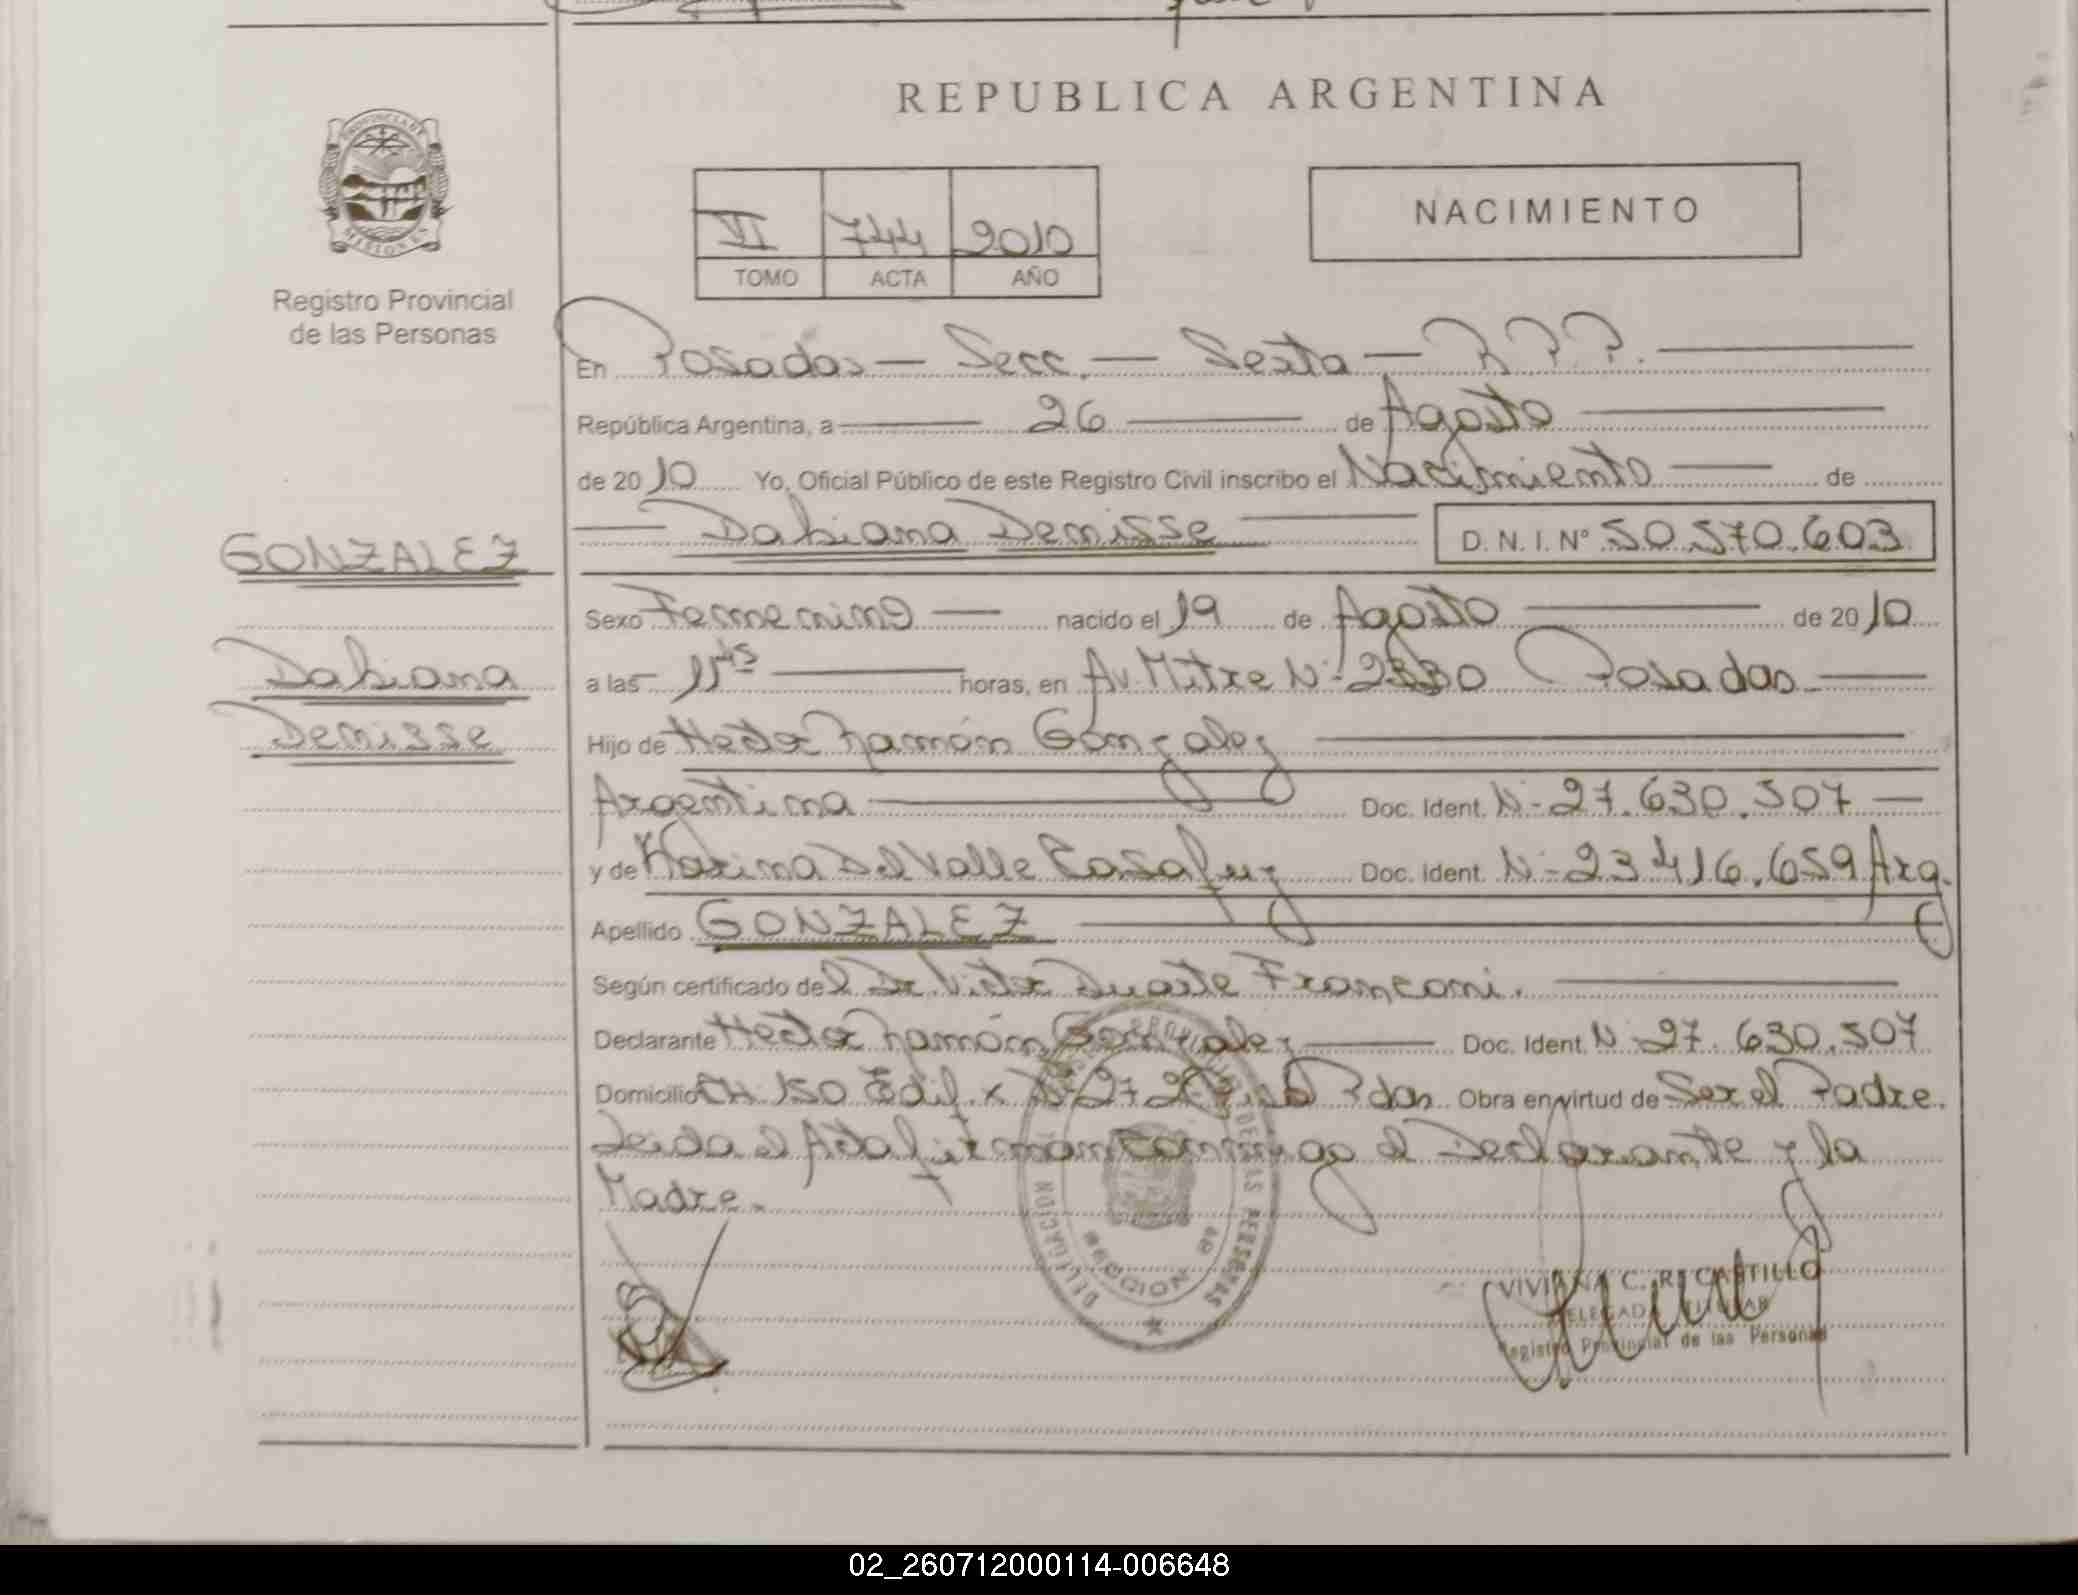 REPUBLICA ARGENTINA
PROVINCIA DE MISIONES
Registro Provincial
de las Personas
VI 744 2010
TOMO ACTA AÑO
NACIMIENTO
En Posadas — Secc. — Sexta — R.P.P.
República Argentina, a 26 de Agosto
de 2010 Yo, Oficial Público de este Registro Civil inscribo el Nacimiento de
Dabiana Denisse D. N. I. Nº 50.570.603
GONZALEZ
Dabiana
Denisse
Sexo Femenino nacido el 19 de Agosto de 2010
a las 11 hs horas, en Av. Mitre Nº 2330 Posadas
Hijo de Hector Ramón Gonzalez
Argentina Doc. Ident. Nº 27.630.507
y de Karina Del Valle Casafuz Doc. Ident. Nº 23.416.659 Arg.
Apellido GONZALEZ
Según certificado del Dr. Victor Duarte Franconi.
Declarante Hector Ramón Gonzalez Doc. Ident. Nº 27.630.507
Domicilio CH 150 Edif. x Pdas Obra en virtud de Ser el Padre.
Leida el Acta firman conmigo el Declarante y la
Madre.
DELEGACION DE LAS PERSONAS
VIVIANA C. R. CASTILLO
DELEGADA TITULAR
Registro Provincial de las Personas
02_260712000114-006648